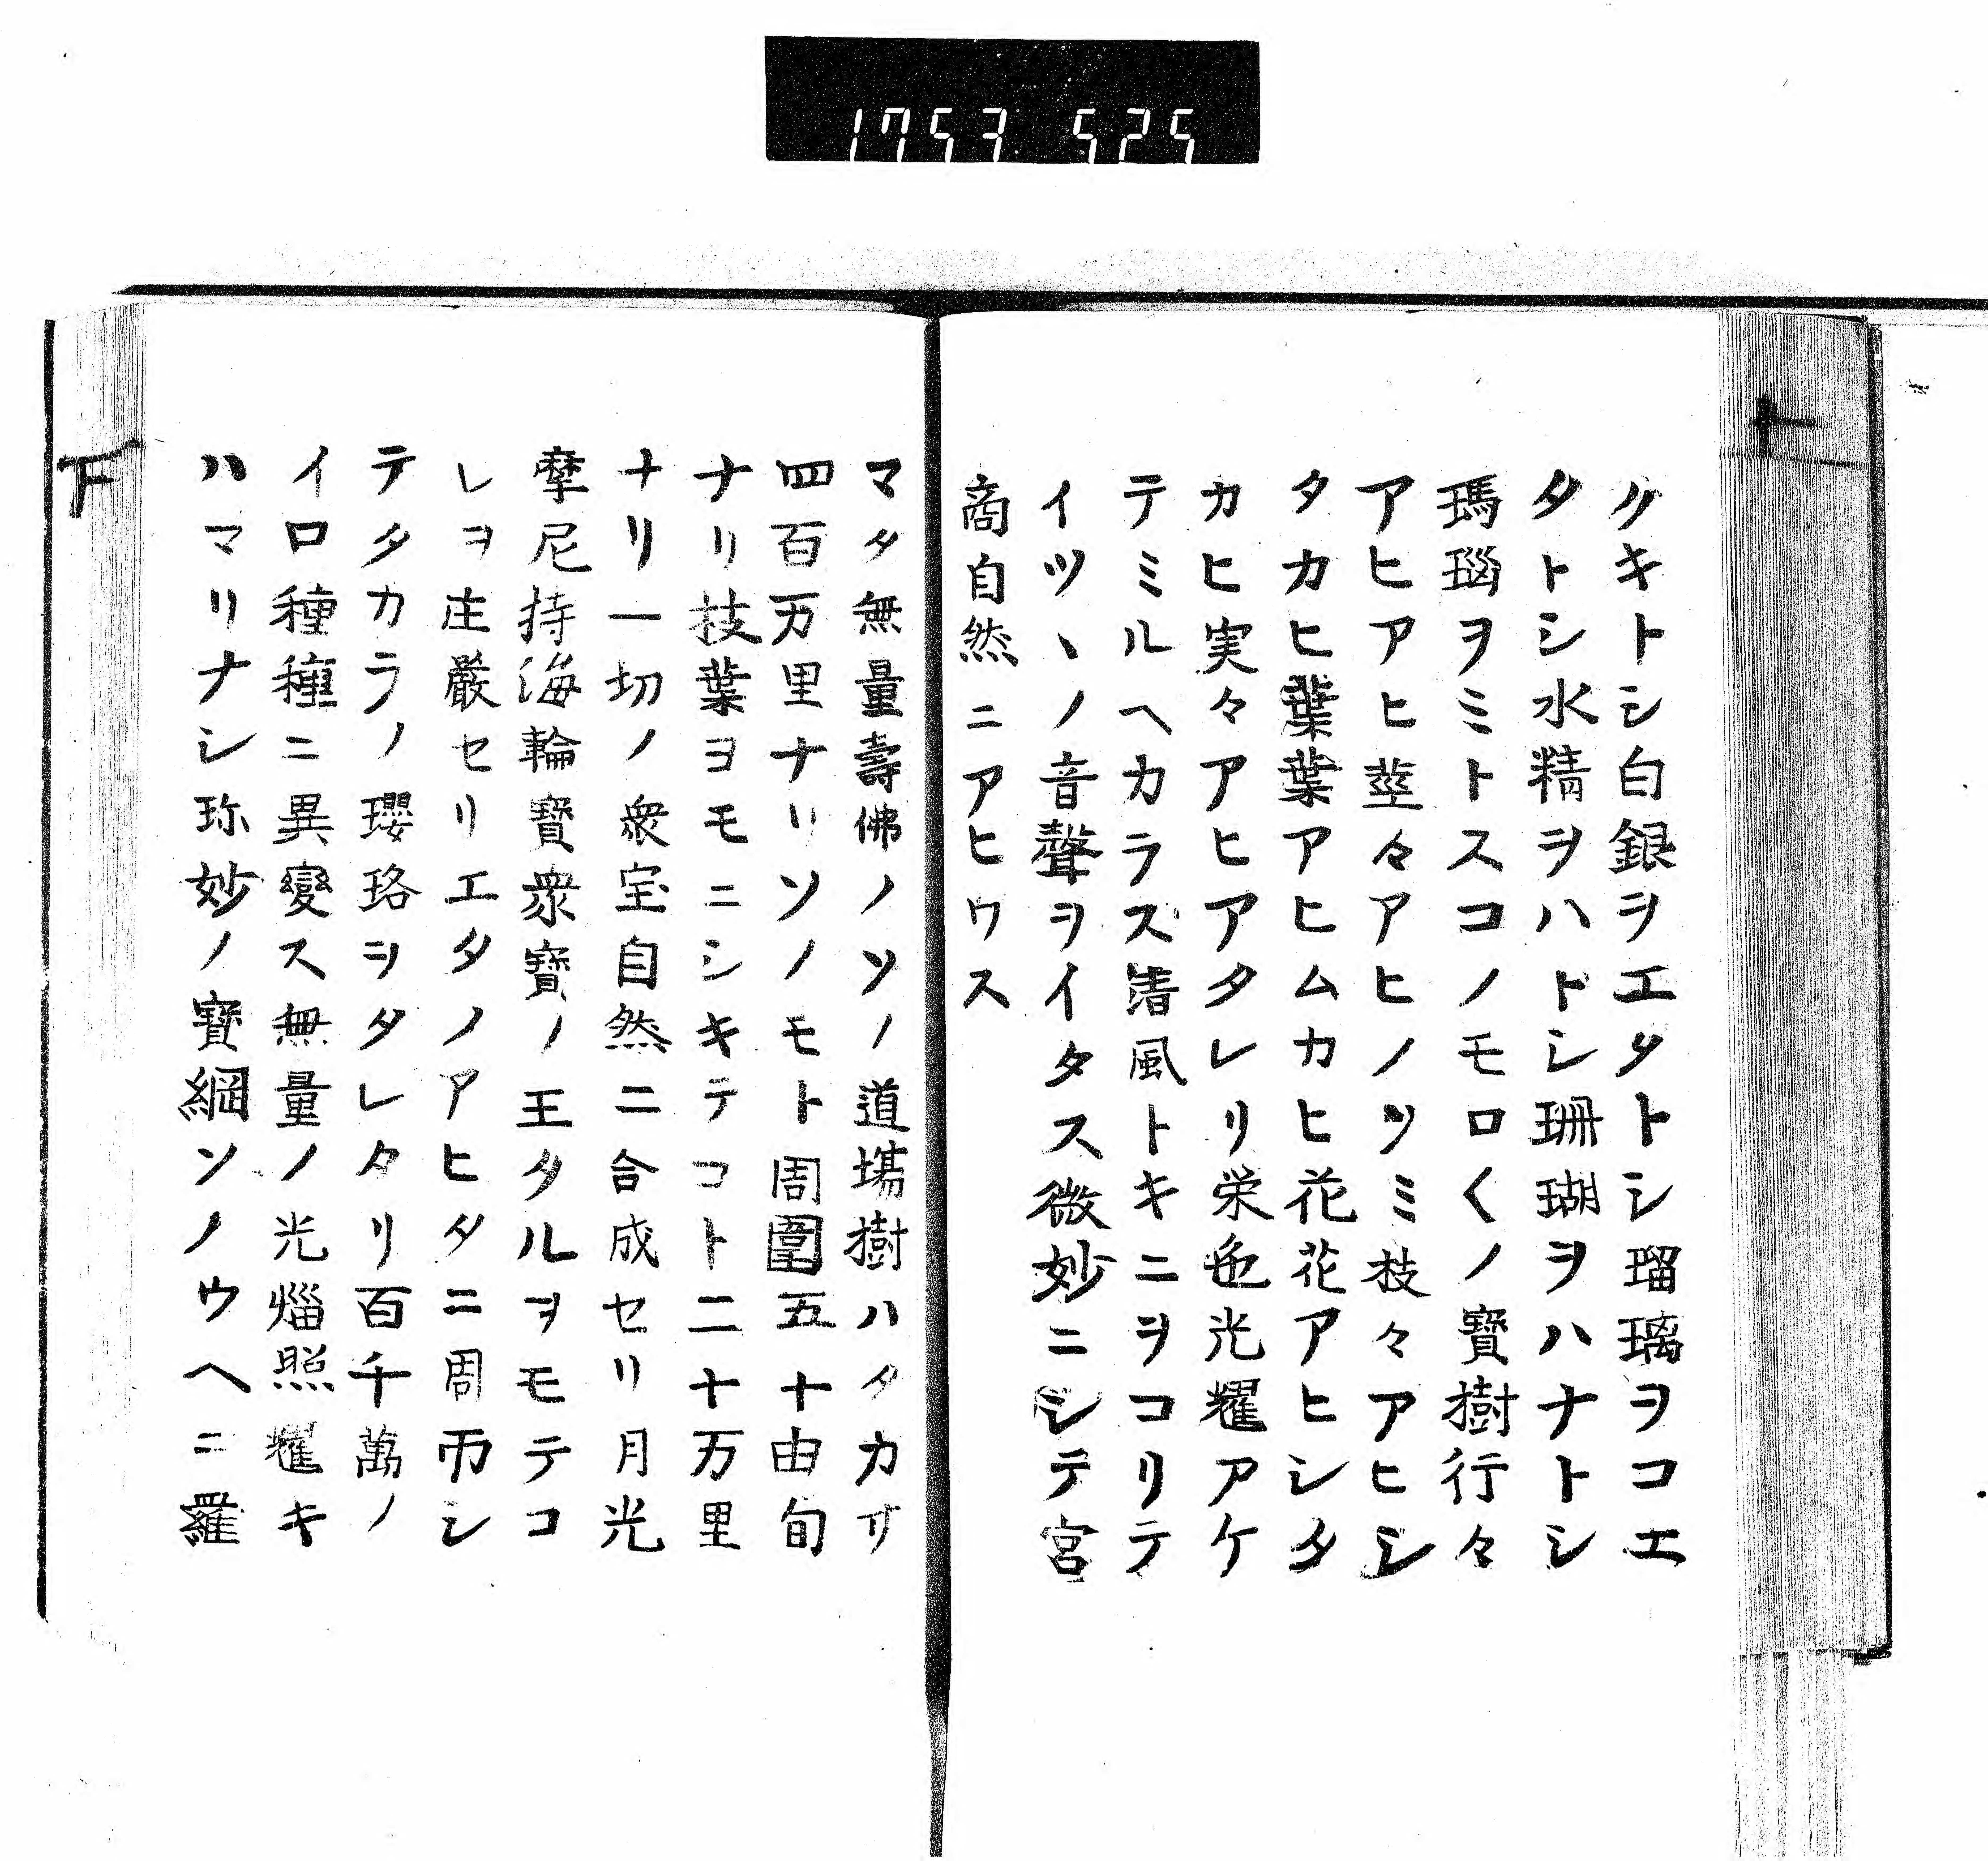 1753 525
クキトシ白銀ヲエタトシ瑠璃ヲコエ
タトシ水精ヲハトシ珊瑚ヲハナトシ
瑪瑙ヲミトスコノモロ〱ノ寶樹行々
アヒアヒ莖々アヒノツミ枝々アヒシ
タカヒ葉葉アヒムカヒ花花アヒシタ
カヒ実々アヒアタレリ栄色光耀アケ
テミルヘカラス清風トキニヲコリテ
イツヽノ音聲ヲイタス微妙ニシテ宮
商自然ニアヒワス
マタ無量壽佛ノソノ道場樹ハタカサ
四百万里ナリソノモト周圍五十由旬
ナリ枝葉ヨモニシキテコト二十万里
ナリ一切ノ衆宝自然ニ合成セリ月光
摩尼持海輪寶衆寶ノ王タルヲモテコ
レヲ庄嚴セリエタノアヒタニ周帀シ
テタカラノ瓔珞ヲタレタリ百千萬ノ
イロ種種ニ異變ス無量ノ光焔照耀キ
ハマリナシ珎妙ノ寶網ソノウヘニ羅
下